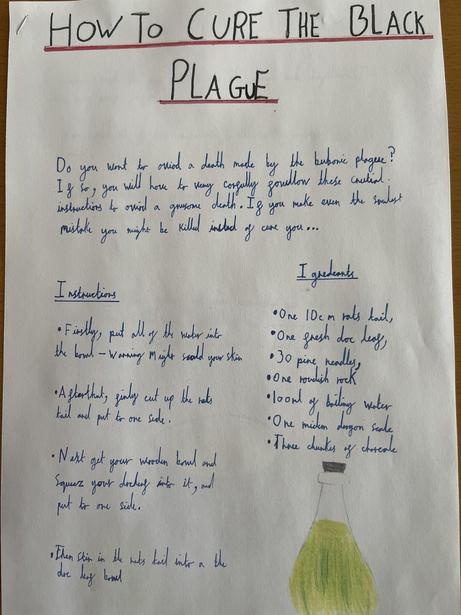 HOW TO CURE THE BLACK
PLAGUE
Do you want to aviod a death made by the bubonic plague?
If so, you will have to very these
instructions to aviod a gruesome death. If you make even the
mistake you might be killed insted of cure you...
Instructions
• Firstly, put all of the water into
the bowl - Warning Might your skin
• Afterthat, cut up the rats
tail and put to one side.
• Next get your wooden bowl and
Squeez your into it, and
put to one side.
• Then in the rats tail into a the
doc leaf bowl
Igredeants
• One 10cm rats tail,
• One fresh doc leaf,
• 30 pine needles,
• One roudish rock
• 100ml of boiling water
• One dragon scale
• Three chunkes of